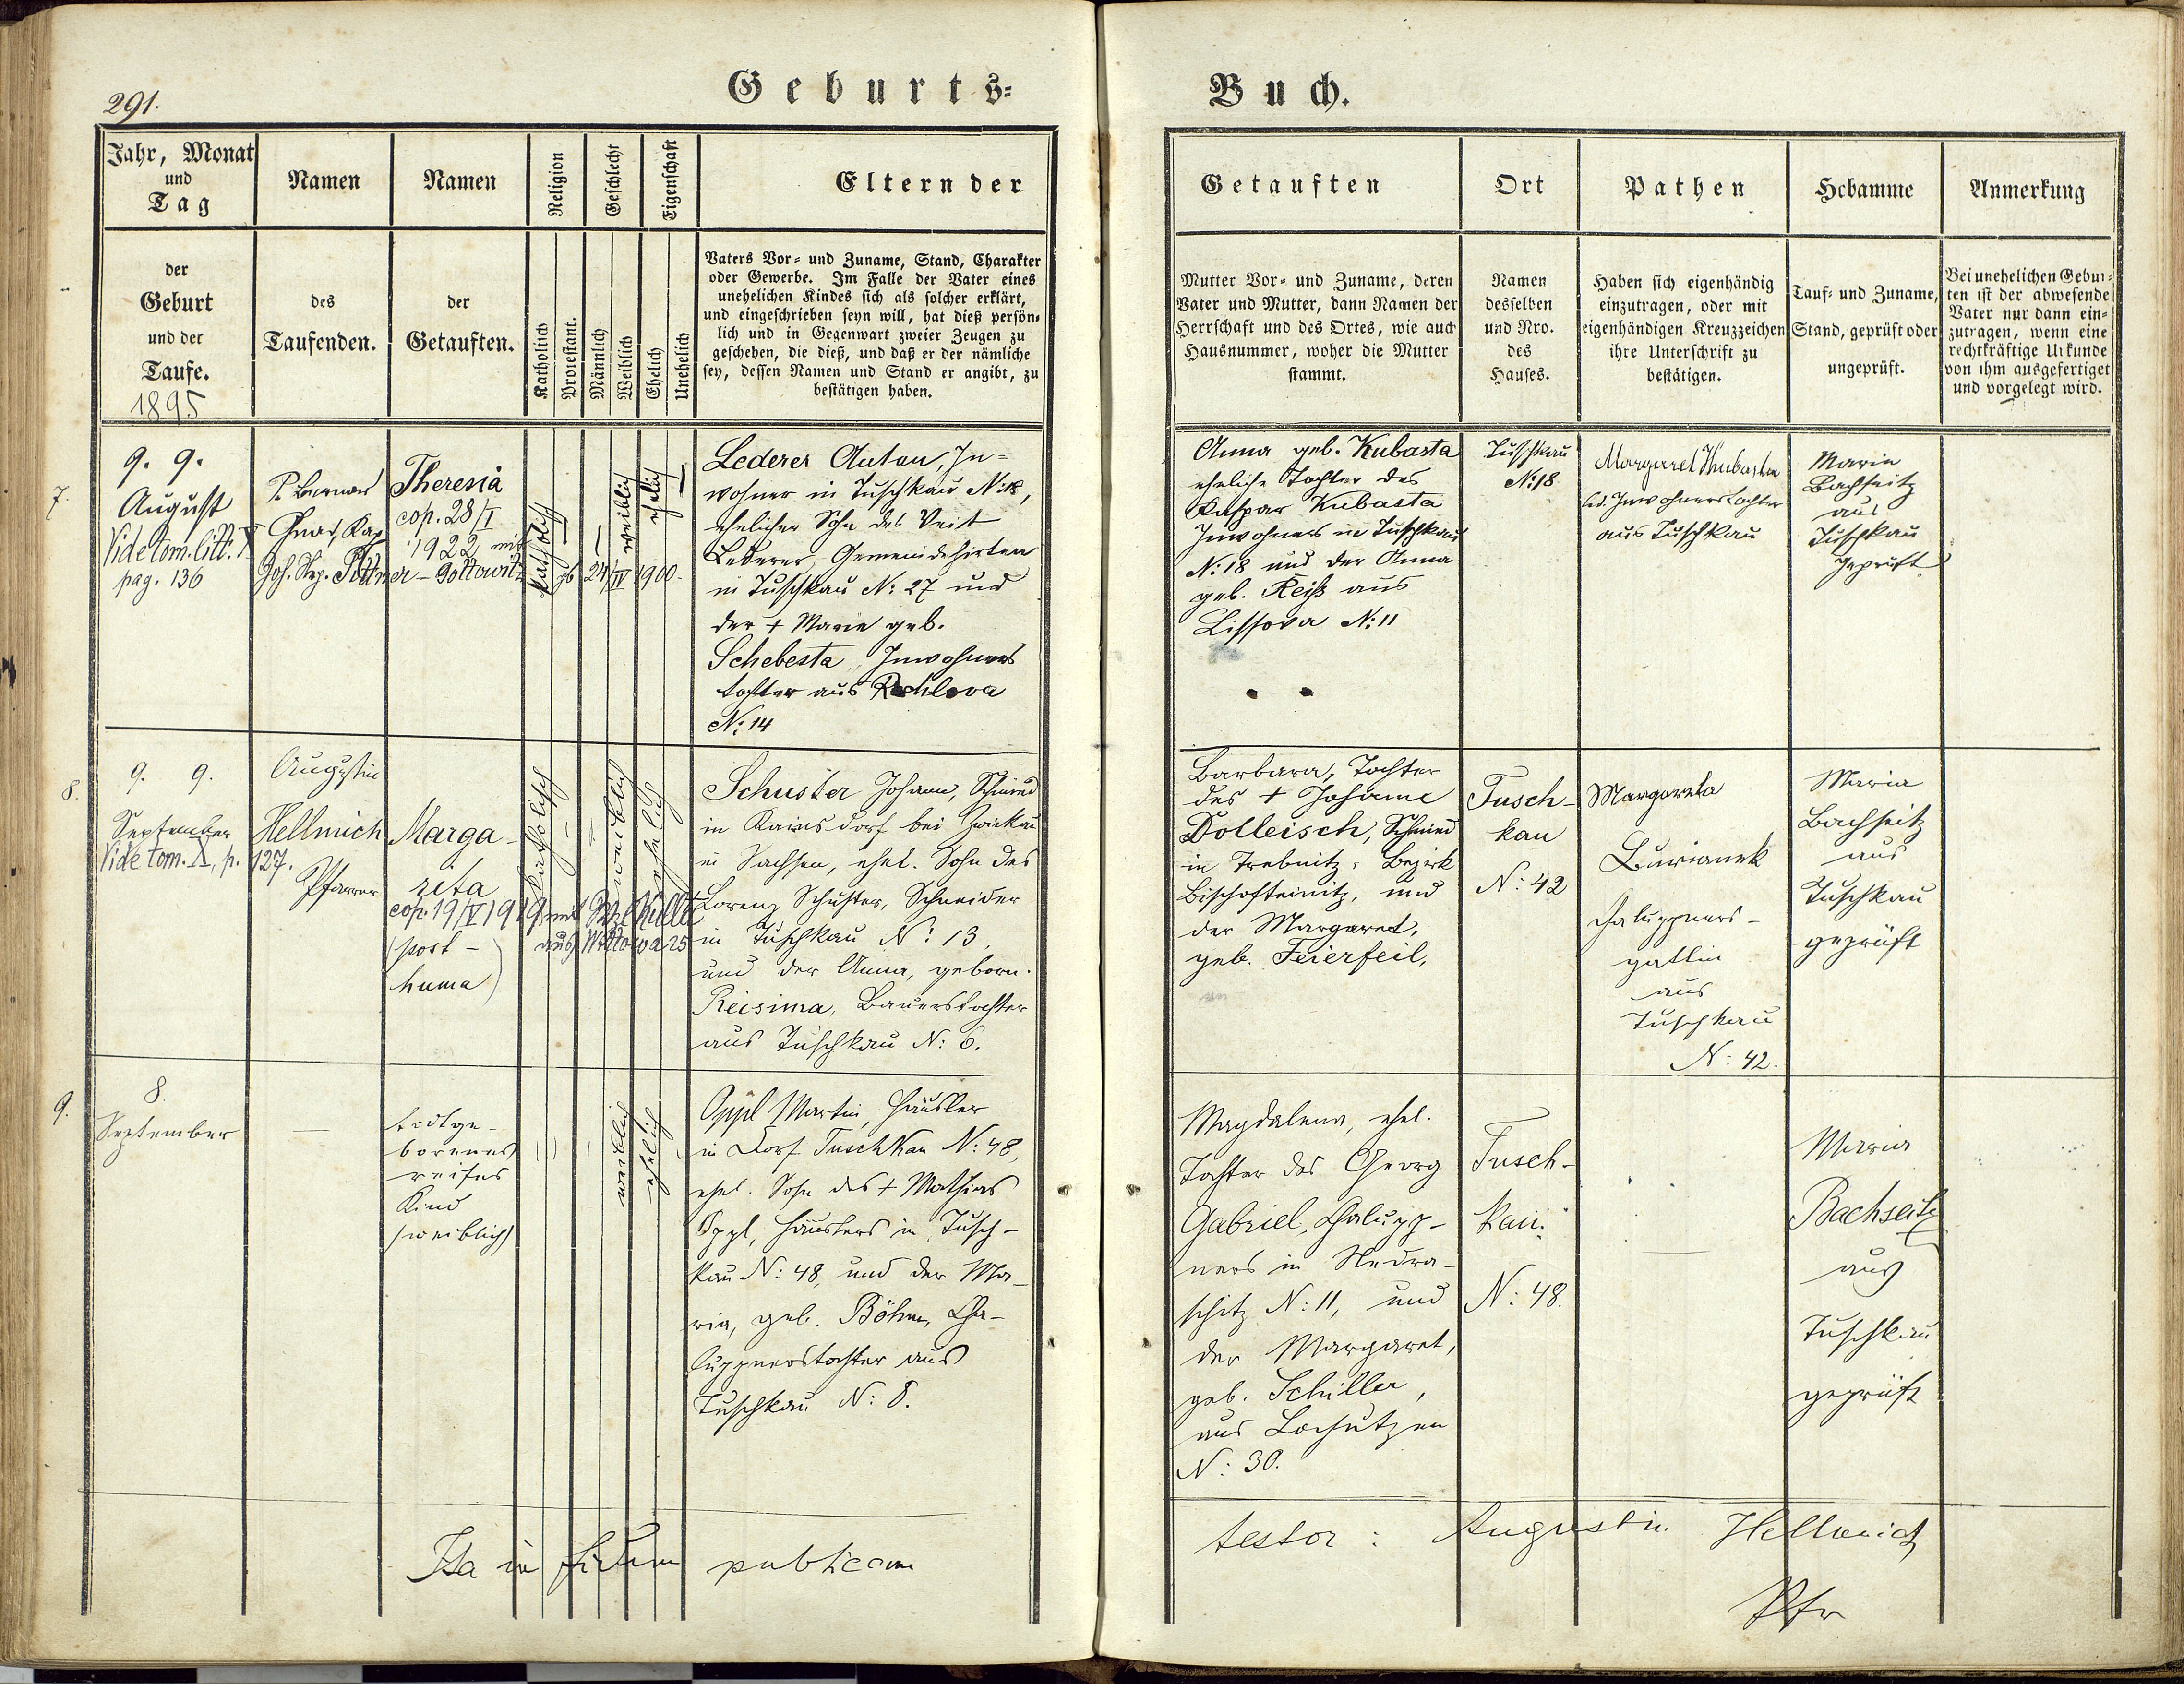 291.
Geburts=
Buch.
Jahr, Monat
und
Tag
Namen
Namen
Religion
Geschlecht
Eigenschaft
Eltern der
der
Geburt
und der
Taufe.
1895
des
Taufenden.
der
Getauften.
Katholich
Protestant.
Männlich
Weiblich
Ehelich
Unehelich
Vaters Vor= und Zuname, Stand, Charakter
oder Gewerbe. Im Falle der Vater eines
unehelichen Kindes sich als solcher erklärt,
und eingeschrieben seyn will, hat dieß persön=
lich und in Gegenwart zweier Zeugen zu
geschehen, die dieß, und daß er der nämliche
sey, dessen Namen und Stand er angibt, zu
bestätigen haben.
Getauften
Ort
Pathen
Hebamme
Anmerkung
Mutter Vor= und Zuname, deren
Vater und Mutter, dann Namen der
Herrschaft und des Ortes, wie auch
Hausnummer, woher die Mutter
stammt.
Namen
desselben
und Nro.
des
Hauses.
Haben sich eigenhändig
einzutragen, oder mit
eigenhändigen Kreuzzeichen
ihre Unterschrift zu
bestätigen.
Tauf= und Zuname,
Stand, geprüft oder
ungeprüft.
Bei unehelichen Gebur=
ten ist der abwesende
Vater nur dann ein=
zutragen, wenn eine
rechtkräftige Urkunde
von ihm ausgefertiget
und vorgelegt wird.
7.
9. 9.
August
Vide tom. litt. X
pag. 136
Theresia
cop. 28/I
1922 mit
Joh. Nep. Pittner - Gottowitz
24/IV 1900.
katholisch
weiblich
ehelich
Lederer Anton, In=
wohner in Tuschkau N: 18,
ehelicher Sohn des Veit
Lederer, Gemeindehirten
in Tuschkau N: 27 und
der + Marie geb.
Schebesta, Inwohners
tochter aus Rochlova
N: 14
Anna geb. Kubasta
eheliche Tochter des
Kaspar Kubasta
Inwohners in Tuschkau
N: 18 und der Anna
geb. Reiß aus
Lissova N: 11
Tuschkau
N: 18
Margaret Kubasta
led. Inwohnerstochter
aus Tuschkau
Maria
Bachseitz
aus
Tuschkau
geprüft
8.
9. 9.
September
Vide tom. X, p. 127.
Augustin
Hellmich
Pfarrer
Marga-
reta
cop. 19/V 1919 mit
aus
(post-
huma)
katholisch
weiblich
ehelich
Schuster Johann, Schmied
in Kainsdorf bei Zwickau
in Sachsen, ehel. Sohn des
Lorenz Schuster, Schneider
in Tuschkau N: 13,
und der Anna, geborn.
Reisima, Bauerstochter
aus Tuschkau N: 6.
Barbara, Tochter
des + Johann
Dolleisch, Schmied
in Trebnitz, Bezirk
Bischofteinitz, und
der Margaret,
geb. Feierfeil,
Tusch-
kau
N: 42
Margareta
Burianek
Chaluppners-
gattin
aus
Tuschkau
N: 42.
Maria
Bachseitz
aus
Tuschkau
geprüft
9.
8.
September
todtge-
borenes
reifes
Kind
(weiblich)
weiblich
ehelich
Oppl Martin, Häusler
in Dorf Tuschkau N: 48,
ehel. Sohn des + Mathias
Oppl, Häuslers in Tusch-
kau N: 48, und der Ma-
ria, geb. Böhm, Cha-
luppnerstochter aus
Tuschkau N: 8.
Magdalena, ehel.
Tochter des Georg
Gabriel, Chalupp-
ners in Nedra-
schitz N: 11, und
der Margaret,
geb. Schiller,
aus Lochutzen
N: 30.
Tusch-
kau.
N: 48.
Maria
Bachseitz
aus
Tuschkau
geprüft
Ita in fidem publicam
testor: Augustin Hellmich
Pfr